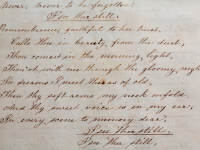 never, never to be forgotten!
I see thee still.
Remembrance, faithful to her trust,
Calls thee in beauty, from the dust,
Thou comest in the morning light,
Thou'rt with me through the gloomy night
In dreams I meet thee as of old,
Then thy soft arms my neck enfold
And thy sweet voice is in my ear,
In every scene to memory dear,
I see thee still.
I see thee still,